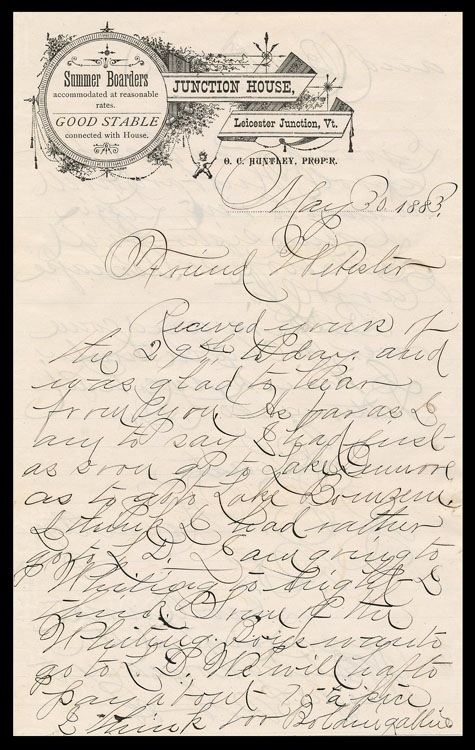 Summer Boarders
accommodated at reasonable
rates.
GOOD STABLE
connected with House.
JUNCTION HOUSE,
Leicester Junction, Vt.
O. C. HUNTLEY, PROP'R.
May 30 1883.
Friend Webster
Recieved yours of
the 29th to day. and
was glad to hear
from you As far as I
am to say I had just
as soon go to Lake Dunmore
as to go to Lake Bomzeen.
I think I had rather
go to L. D. I am going to
Whiting to night I
think Some of the
Whiting Boys want to
go to L. D. We will haf to
pay about 75 a piece
I think too